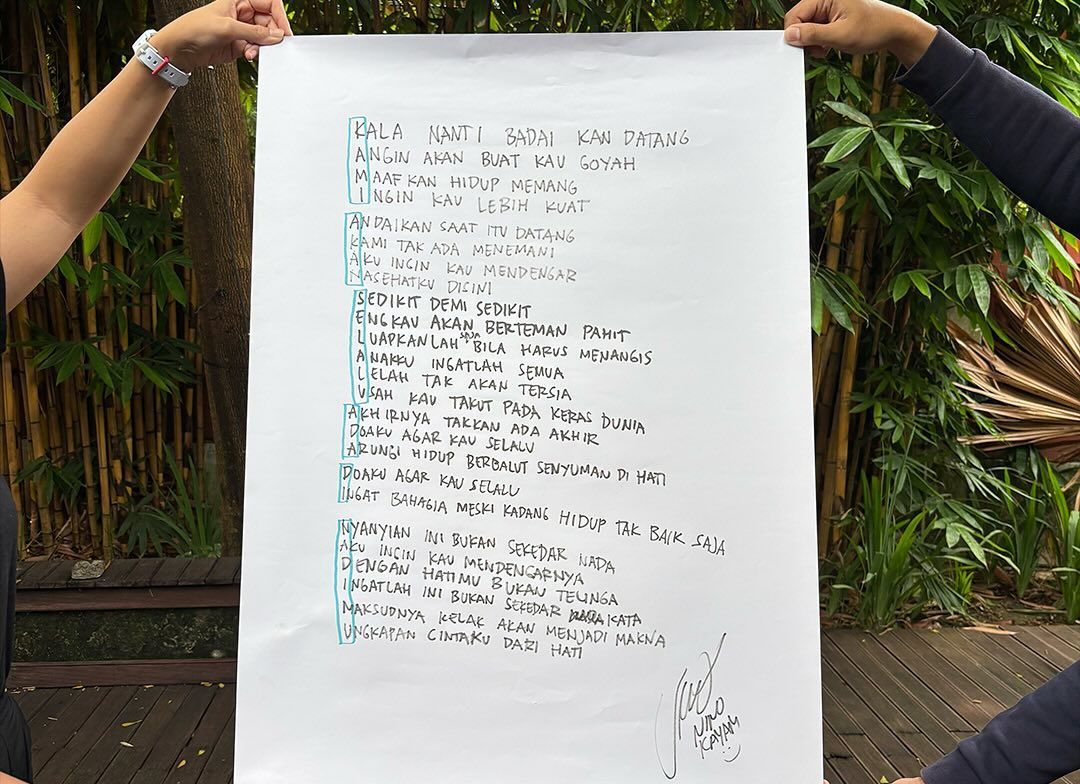 KALA NANTI BADAI KAN DATANG
ANGIN AKAN BUAT KAU GOYAH
MAAFKAN HIDUP MEMANG
INGIN KAU LEBIH KUAT
ANDAIKAN SAAT ITU DATANG
KAMI TAK ADA MENEMANI
AKU INGIN KAU MENDENGAR
NASEHATKU DISINI
SEDIKIT DEMI SEDIKIT
ENGKAU AKAN BERTEMAN PAHIT
LUAPKANLAH SAJA BILA HARUS MENANGIS
ANAKKU INGATLAH SEMUA
LELAH TAK AKAN TERSIA
USAH KAU TAKUT PADA KERAS DUNIA
AKHIRNYA TAKKAN ADA AKHIR
DOAKU AGAR KAU SELALU
ARUNGI HIDUP BERBALUT SENYUMAN DI HATI
DOAKU AGAR KAU SELALU
INGAT BAHAGIA MESKI KADANG HIDUP TAK BAIK SAJA
NYANYIAN INI BUKAN SEKEDAR NADA
AKU INGIN KAU MENDENGARNYA
DENGAN HATIMU BUKAN TELINGA
INGATLAH INI BUKAN SEKEDAR KATA
MAKSUDNYA KELAK AKAN MENJADI MAKNA
UNGKAPAN CINTAKU DARI HATI
NINO
KAYAM